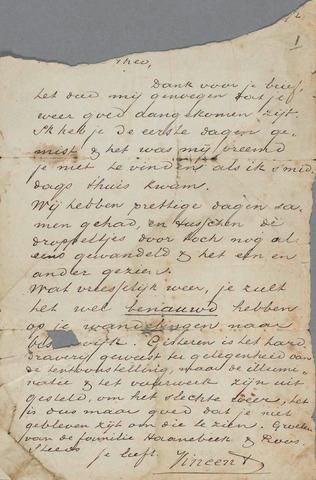 1
Theo,
Dank voor je brief,
het deed mij genoegen dat je
weer goed aangekomen zijt.
Ik heb je de eerste dagen ge-
mist & het was mij vreemd
je niet te vinden als ik s'mid-
dags thuis kwam.
Wij hebben prettige dagen sa-
men gehad, en tusschen de
droppeltjes door toch nog al
eens gewandeld & het een en
ander gezien.
Wat vreeselijk weer, je zult
het wel benauwd hebben
op je wandelingen naar
Gisteren is het hard-
draverij geweest ter gelegenheid van
de tentoonstelling, maar de illumi-
natie & het vuurwerk zijn uit-
gesteld, om het slechte weer, het
is dus maar goed dat je niet
gebleven zijt om die te zien. Groeten
van de familie Haanebeek & Roos.
Steeds
je liefh. Vincent